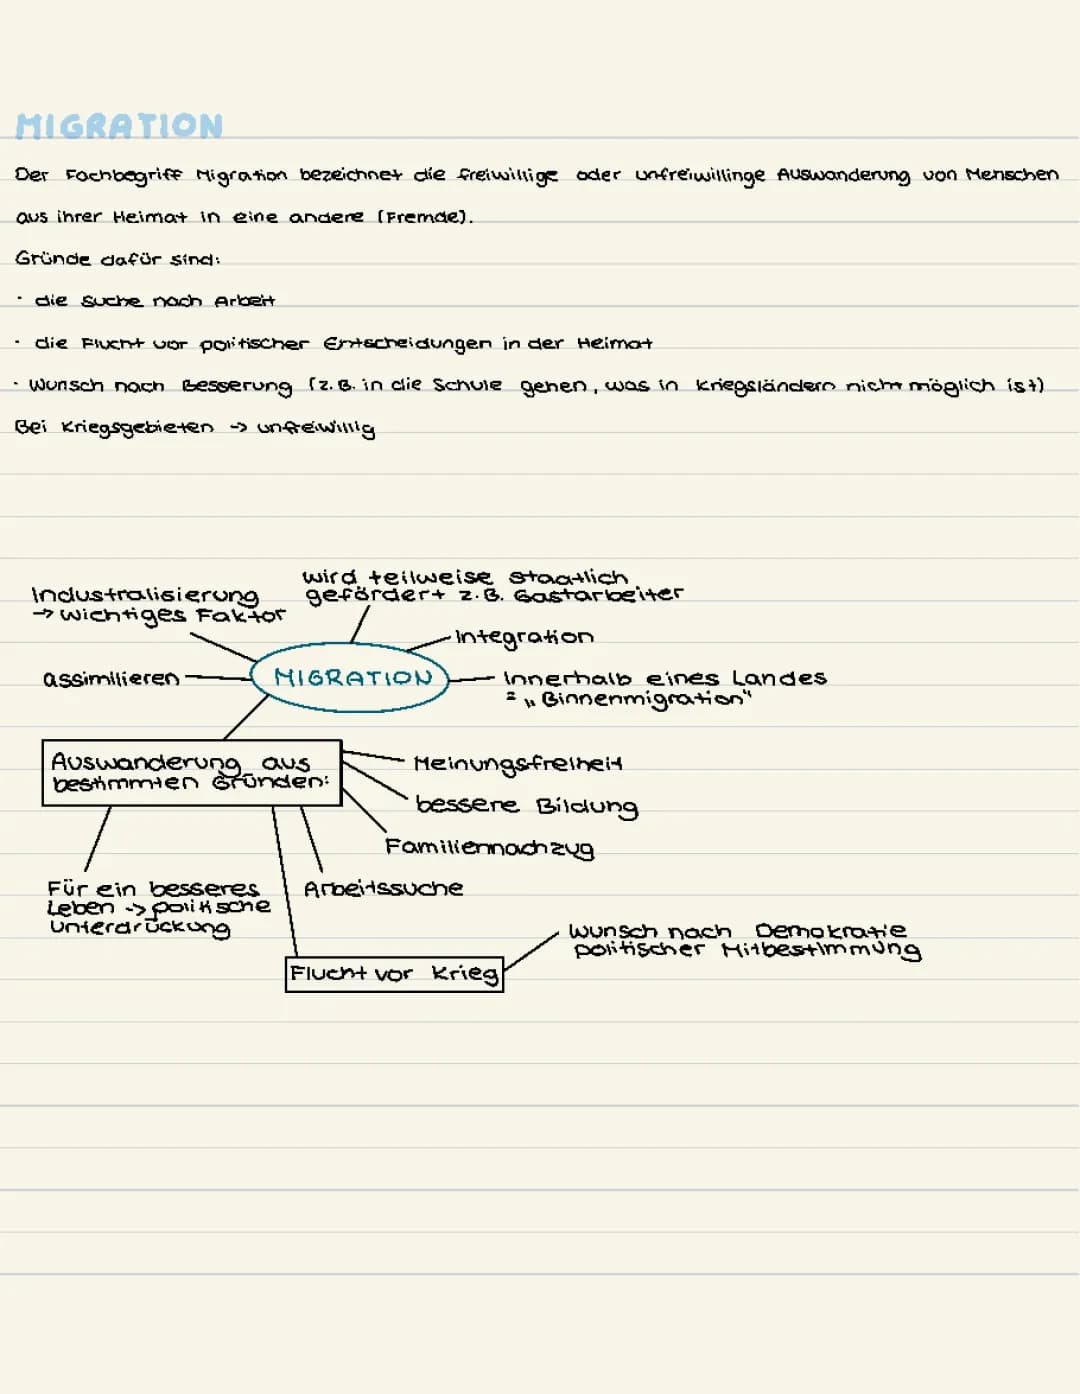 MIGRATION
Der Fachbegriff Migration bezeichnet die freiwillige oder unfreiwillinge Auswanderung von Menschen
aus ihrer Heimat in eine andere (Fremde).
Gründe dafür sind:
· die Suche nach Arbeit
· die Flucht vor politischer Entscheidungen in der Heimat
· Wunsch nach Besserung (z.B. in die Schule gehen, was in Kriegsländern nicht möglich ist)
Bei Kriegsgebieten -> unfreiwillig
wird teilweise staatlich
gefördert z.B. Gastarbeiter
Industralisierung
-> wichtiges Faktor
Integration
assimilieren
MIGRATION
Innerhalb eines Landes
= „Binnenmigration"
Auswanderung aus
bestimmten Gründen:
Meinungsfreiheit
bessere Bildung
Familiennachzug
Für ein besseres
Leben -> politische
Unterdrückung
Arbeitssuche
Wunsch nach Demokratie
politischer Mitbestimmung
Flucht vor Krieg